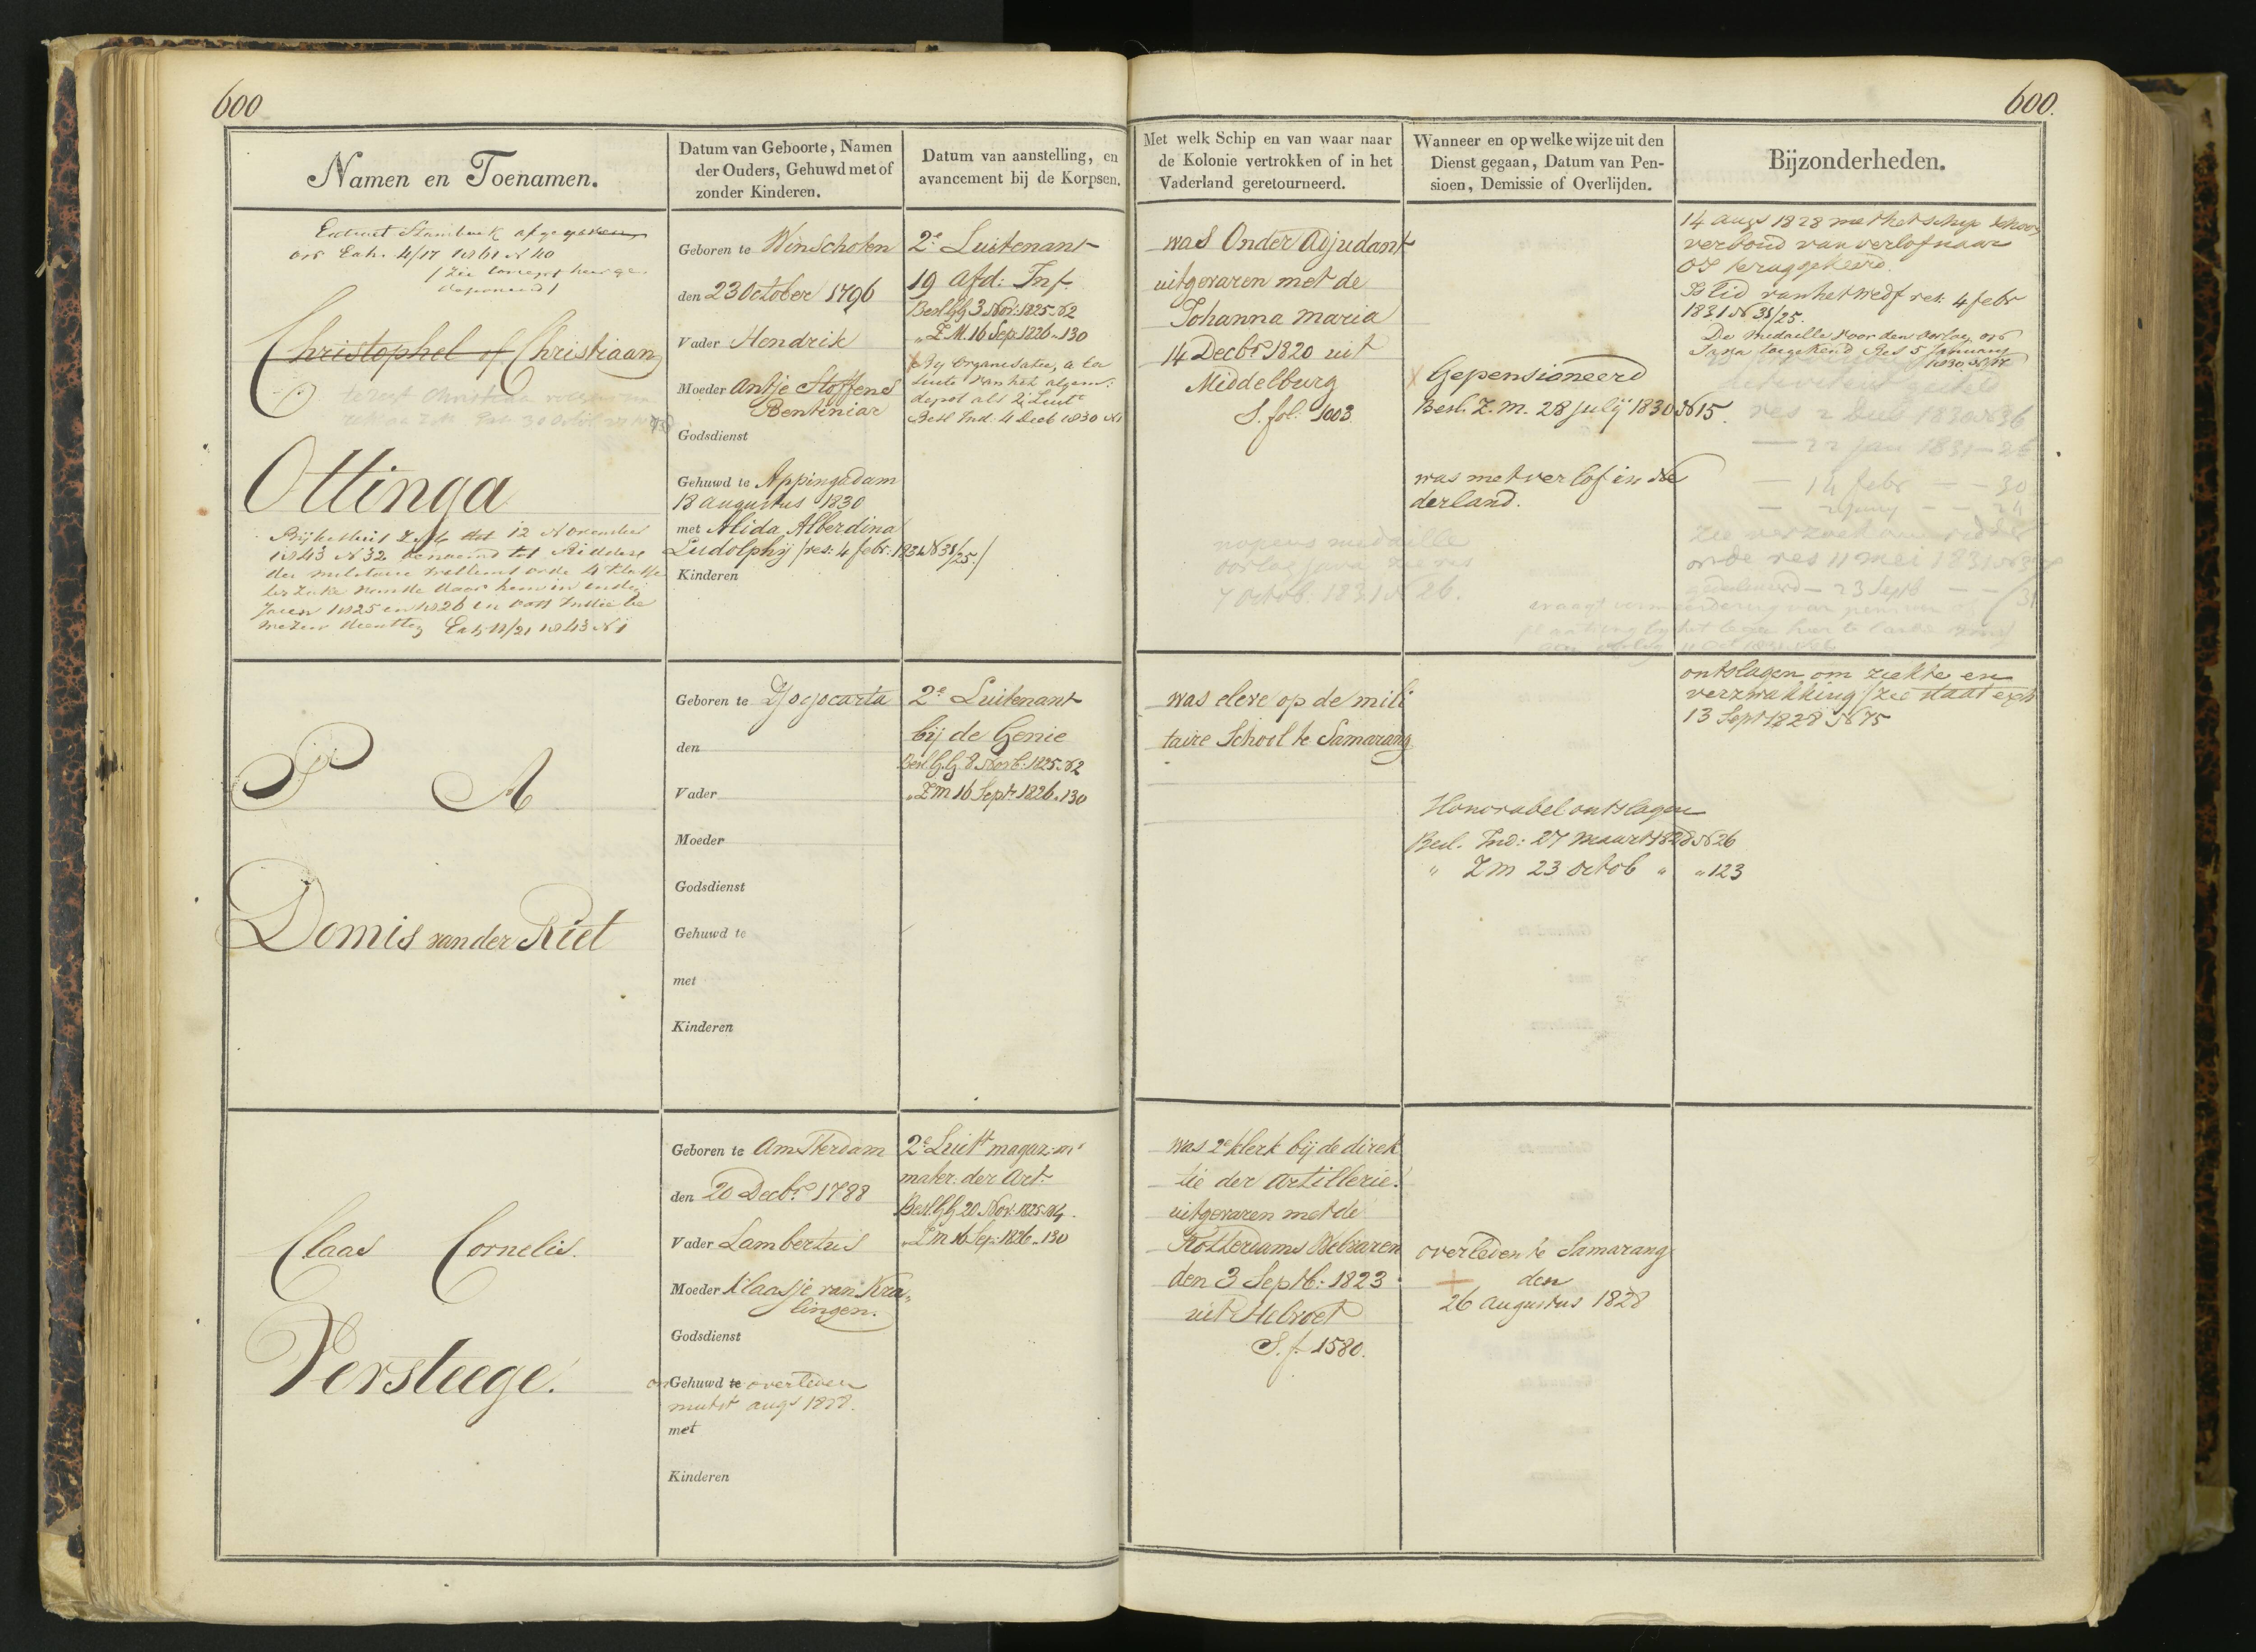 600
600.
Namen en Toenamen.
Datum van Geboorte, Namen
der Ouders, Gehuwd met of
zonder Kinderen.
Datum van aanstelling, en
avancement bij de Korpsen.
Met welk Schip en van waar naar
de Kolonie vertrokken of in het
Vaderland geretourneerd.
Wanneer en op welke wijze uit den
Dienst gegaan, Datum van Pen-
sioen, Demissie of Overlijden.
Bijzonderheden.
Extract Stamboek afgegeven
Exh. 4/17 1861 N 40
Christophel of Christiaan
Ottinga
Bij besluit Z M 12 November
1843 N 32 benoemd tot Ridder
der militaire Willems orde 4 Klasse
Exh 11/21 1843 N 1
Geboren te Winschoten
den 23 October 1796
Vader Hendrik
Moeder Antje Stoffens
Bentiniar
Godsdienst
Gehuwd te Appingadam
18 augustus 1830
met Alida Alberdina
Ludolphij /res: 4 febr: 1831 N 38/25/
Kinderen
2e Luitenant
19 afd: Inf.
Besl GG 3 Nov: 1825 N2
" Z M 16 Sep 1826 " 130
X Bij organisatie, a la
suite van het algem:
depot als 2e Luit
Besl Ind 4 Decb 1830 N1
was Onder Adjudant
uitgevaren met de
Johanna Maria
14 Decbr 1820 uit
Middelburg
S. fol. 1003
X Gepensioneerd
Besl. Z. M. 28 julij 1830 N 15.
was met verlof in Ne
derland.
14 augs 1828 met het schip Schoon
verbond van verlof naar
OI teruggekeerd.
Is lid van het Wedf res: 4 febr
1831 N 38/25.
De Medaille voor den oorlog op
Java toegekend Res 5 January
res 2 Decb 1830 N 36
— 22 jan 1831 — 26
— 14 febr — — 30
zie verzoek om ridder
orde res 11 mei 1831
— 23 Septb — —
nopens medaille
oorlog Java zie res
7 Octob. 1831 N 26.
P A
Domis van der Riet
Geboren te Djocjocarta
den
Vader
Moeder
Godsdienst
Gehuwd te
met
Kinderen
2e Luitenant
bij de Genie
Besl. G.G. 8 Novb: 1825 N2
" Z M 16 Septr 1826 " 130
was eleve op de mili
taire School te Samarang
Honorabel ontslagen
Besl. Ind: 27 Maart 1828 N 26
" Z M 23 Octob " " 123
ontslagen om ziekte en
verzwakking / zie staat exh
13 Sept 1828 N 75
Claas Cornelis.
Versteege.
Geboren te Amsterdam
den 20 Decbr 1788
Vader Lambertus
Moeder Klaasje van Kra„
lingen.
Godsdienst
onGehuwd te overleden
mutst augs 1828.
met
Kinderen
2e Luitt magaz: mr
mater. der Art.
Besl. GG 20 Nov: 1825 N4.
" Z M 16 Sep: 1826 " 130
was 2e klerk bij de direk
tie der Artillerie.
uitgevaren met de
Rotterdams Welvaren
den 3 Septb: 1823
uit Helvoet
S. f. 1580.
overleden te Samarang
+ den
26 augustus 1828